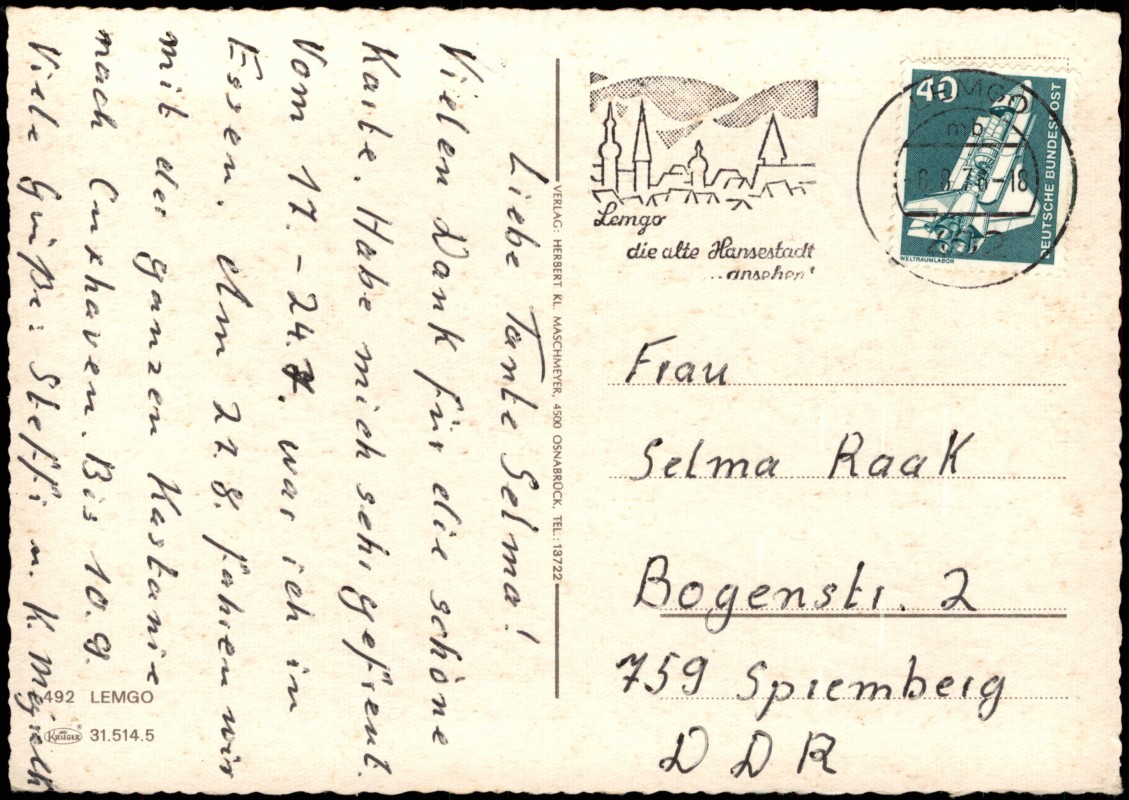 Liebe Tante Selma!
Vielen Dank für die schöne
Karte Habe mich sehr gefreut.
Vom 17. - 24.7. war ich in
Essen. Am 22 8. fahren wir
mit der ganzen Kastanie
nach Cuxhaven. Bis 10.9.
Viele Grüße: Steffi u. K.
492 LEMGO
KRÜGER
31.514.5
VERLAG: HERBERT KL. MASCHMEYER, 4500 OSNABRÜCK, TEL.: 13722
Lemgo
die alte Hansestadt
ansehen!
LEMGO
mb
-18
40
DEUTSCHE BUNDESPOST
WELTRAUMLABOR
Frau
Selma Raak
Bogenstr. 2
759 Spremberg
DDR